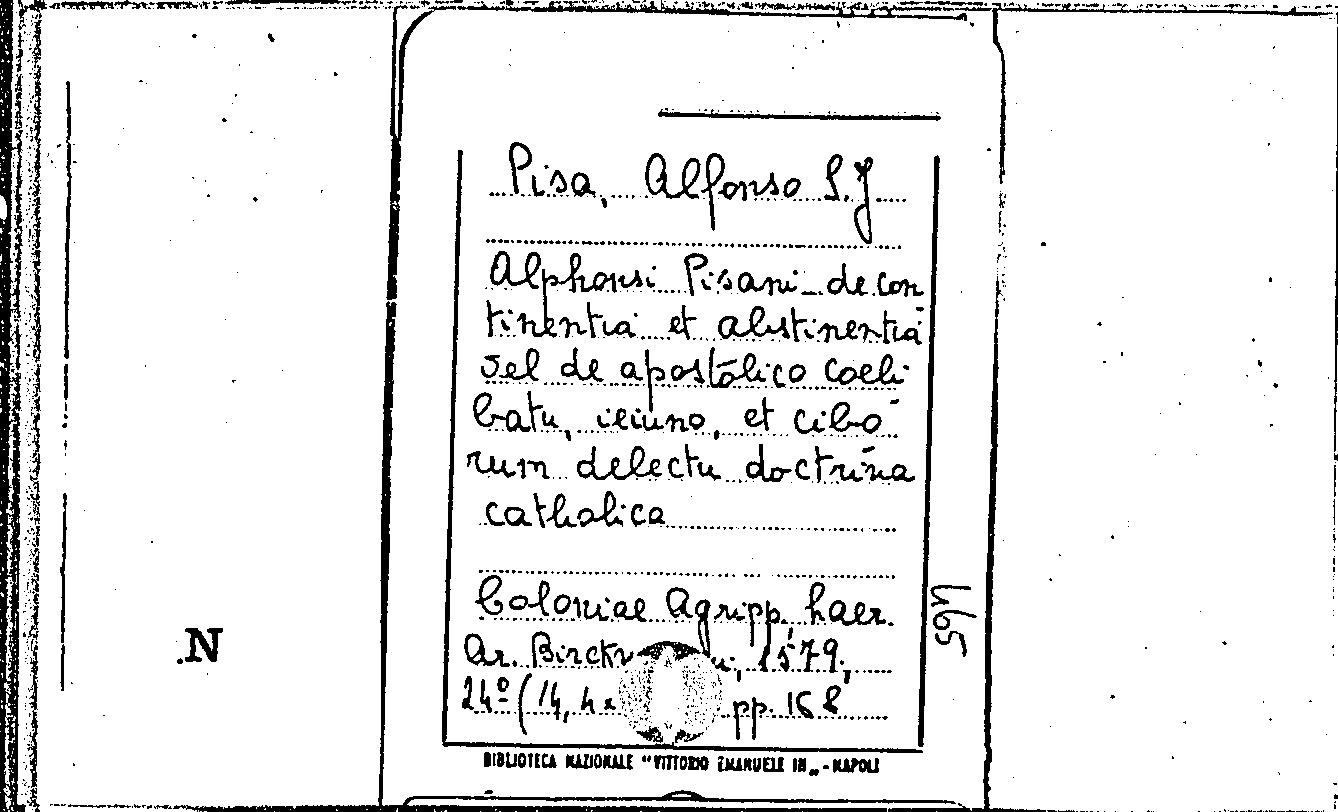 Pisa, Alfonso S.J
Alphonsi Pisani de con
tinentia et abstinentia
vel de apostolico coeli
batu, ieiuno, et cibo
rum delectu doctrina
catholica
Coloniae Agripp, haer.
Ar. 1579,
24º (14,4x pp. 168
465
.N
BIBLIOTECA NAZIONALE "VITTORIO EMANUELE III„ - NAPOLI